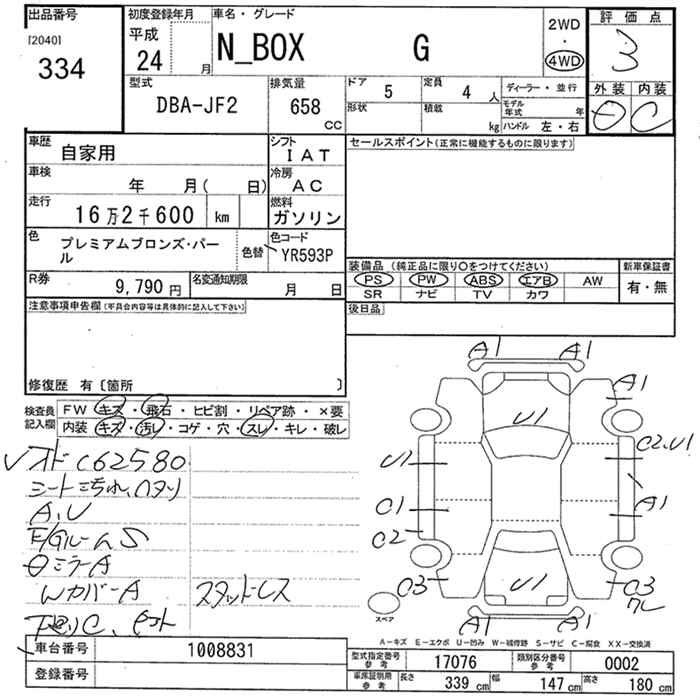 出品番号 初度登録年月 車名・グレード 評価点
[2040] 334 平成 24 月 N_BOX G 2WD ・ 4WD 3
型式 排気量 ドア 5 定員 4 人 ディーラー・並行 外装 内装
DBA-JF2 658 CC 形状 積載 kg モデル年式 年 ハンドル 左・右 C
車歴 自家用 シフト IAT セールスポイント(正常に機能するものに限ります)
車検 年 月( 日) 冷房 AC
走行 16万2千600 km 燃料 ガソリン
色 プレミアムブロンズ・パール 色替 色コード YR593P
装備品 (純正品に限り○をつけてください) 新車保証書
R券 9,790円 名変通知期限 月 日 PS PW ABS エアB AW 有・無
SR ナビ TV カワ
注意事項申告欄(不具合内容等は具体的に記入して下さい) 後日品
修復歴 有〔箇所 〕
検査員記入欄 FW キズ・飛石・ヒビ割・リペア跡・×要
内装 キズ・汚レ・コゲ・穴・スレ・キレ・破レ
A1 A1
A1
U1
U1 C2.U1
C1 A1
C2
C3 U1 C3
A1 A1
スペア
C62580
シート汚れ、
A,U
E/Gルーム S
ミラーA
WカバーA スタッドレス
下廻りC、
A-キズ E-エクボ U-凹み W-補修跡 S-サビ C-腐食 XX-交換済
車台番号 1008831 型式指定番号 参考 17076 類別区分番号 参考 0002
登録番号 車庫証明用 参考 長さ 339 cm 幅 147 cm 高さ 180 cm